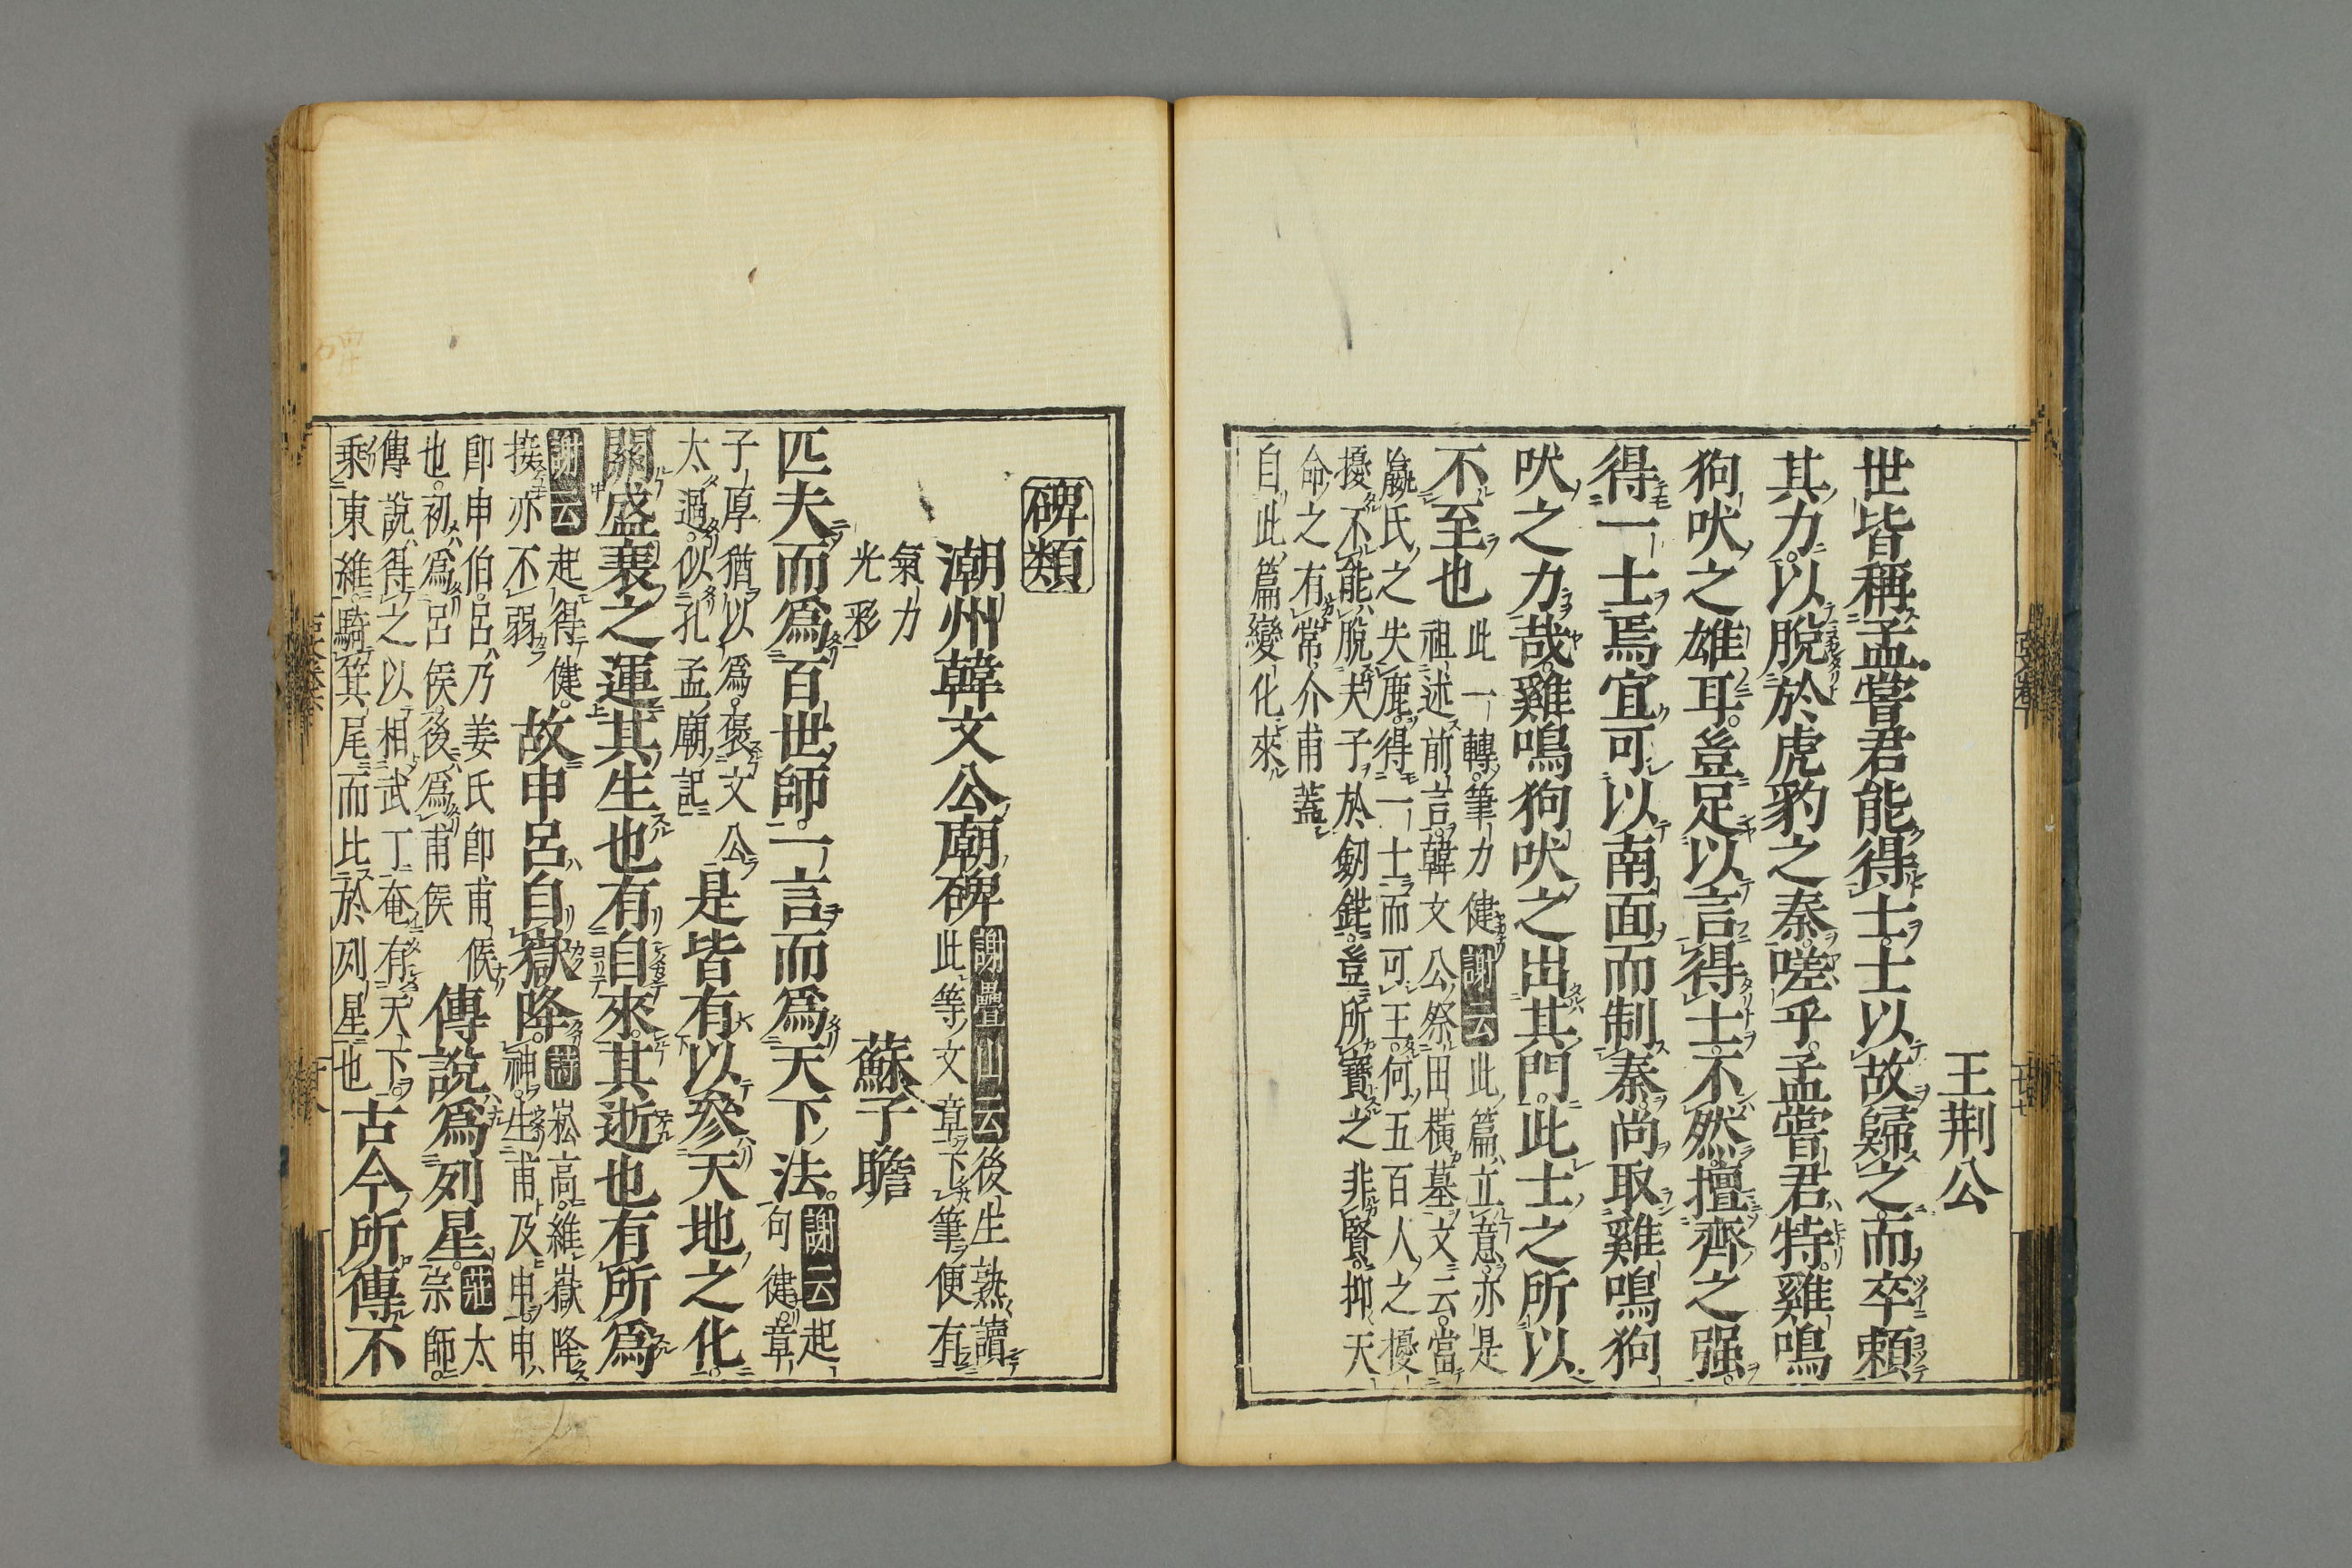 王荆公
世皆稱孟嘗君能得士士以故歸之而卒賴
其力以脫於虎豹之秦嗟乎孟嘗君特雞鳴
狗吠之雄耳豈足以言得士不然擅齊之强
得一士焉宜可以南面而制秦尚取雞鳴狗
吠之力哉雞鳴狗吠之出其門此士之所以
不至也
此一轉筆力健謝云此篇立意亦是
祖述前言韓文公祭田橫墓文云當
嬴氏之失鹿得一士而可王何五百人之擾
擾不能脫夫子於劒鋩豈所寶之非賢抑天
命之有常介甫蓋
自此篇變化來
碑類
潮州韓文公廟碑
謝疊山云後生熟讀
此等文章下筆便有
氣力
光彩
蘇子瞻
匹夫而爲百世師一言而爲天下法
謝云起
句健章
子厚猶以爲褒文公
太過似孔孟廟記
是皆有以參天地之化
關盛衰之運其生也有自來其逝也有所爲
謝云起得健
接亦不弱
故申呂自嶽降
詩崧高維嶽降
神生甫及申申
卽申伯呂乃姜氏卽甫侯
也初爲呂侯後爲甫侯
傳說爲列星
莊太
宗師
傳說得之以相武丁奄有天下
乘東維騎箕尾而比於列星也
古今所傳不